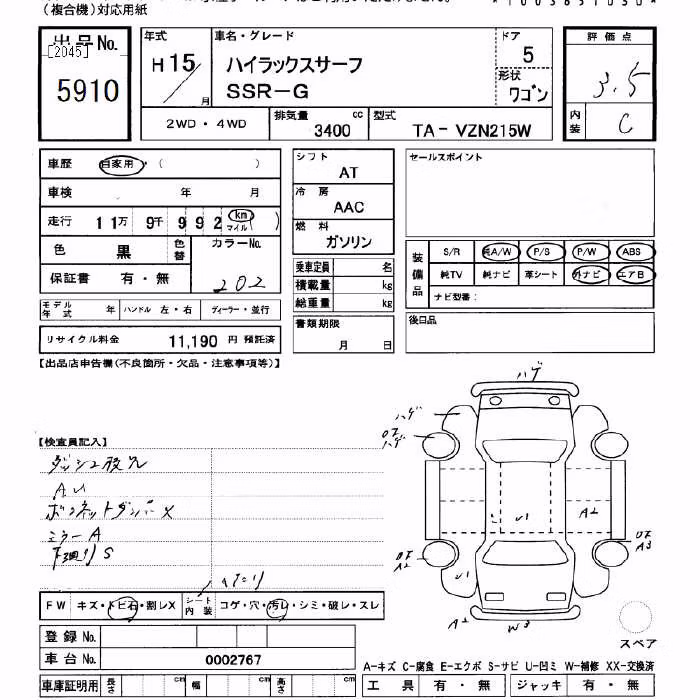 (複合機)対応用紙
出品No.
[2045]
5910
年式
H15/
月
車名・グレード
ハイラックスサーフ
SSR-G
ドア
5
形状
ワゴン
評価点
3.5
内装
C
2WD・4WD
排気量
3400 cc
型式
TA-VZN215W
車歴 自家用・( )
車検 年 月
走行 11万 9千 992 km マイル ( )
色 黒 色替 カラーNo. 202
保証書 有・無
モデル年式 年 ハンドル 左・右 ディーラー・並行
リサイクル料金 11,190 円 預託済
シフト
AT
冷房
AAC
燃料
ガソリン
乗車定員 名
積載量 kg
総重量 kg
書類期限
月 日
セールスポイント
装備品
S/R 純A/W P/S P/W ABS
純TV 純ナビ 革シート 外ナビ エアB
ナビ型番:
後日品
【出品店申告欄(不良箇所・欠品・注意事項等)】
【検査員記入】
AU
ボンネットダンパーX
ミラーA
下廻りS
ハゲ
ハゲ
ハゲ
U1
A2
A3
A2
U1
A2
W3
スペア
FW キズ・トビ石・割レX シート内装 コゲ・穴・汚レ・シミ・破レ・スレ
登録No.
車台No. 0002767
A-キズ C-腐食 E-エクボ S-サビ U-凹ミ W-補修 XX-交換済
車庫証明用 長さ cm 幅 cm 高さ cm
工具 有・無 ジャッキ 有・無